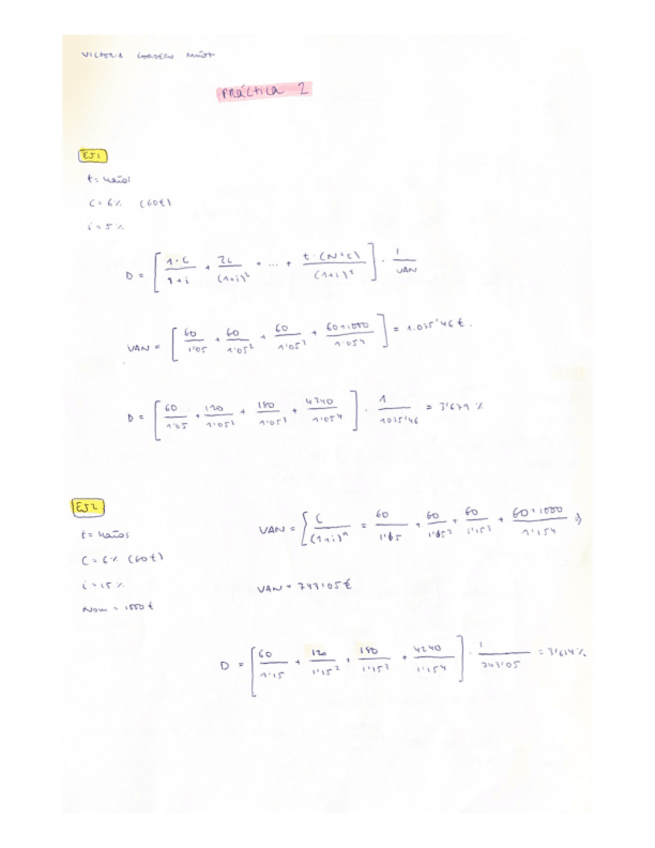 VICTORIA CORDERO MUÑOZ
PRÁCTICA 2
EJ1
t= 4 años
C= 6% (60€)
i= 5%
D = [ 1·C / 1+i + 2C / (1+i)² + ... + t·(N+C) / (1+i)ᵗ ] · 1 / VAN
VAN = [ 60 / 1'05 + 60 / 1'05² + 60 / 1'05³ + 60+1000 / 1'05⁴ ] = 1.035'46 €.
D = [ 60 / 1'05 + 120 / 1'05² + 180 / 1'05³ + 4240 / 1'05⁴ ] · 1 / 1035'46 = 3'679 %
EJ2
t= 4 años
C= 6% (60€)
i= 15%
Nom = 1000 €
VAN = { C / (1+i)ⁿ = 60 / 1'15 + 60 / 1'15² + 60 / 1'15³ + 60+1000 / 1'15⁴ ⇒
VAN = 743'05 €
D = [ 60 / 1'15 + 120 / 1'15² + 180 / 1'15³ + 4240 / 1'15⁴ ] · 1 / 743'05 = 3'614 %